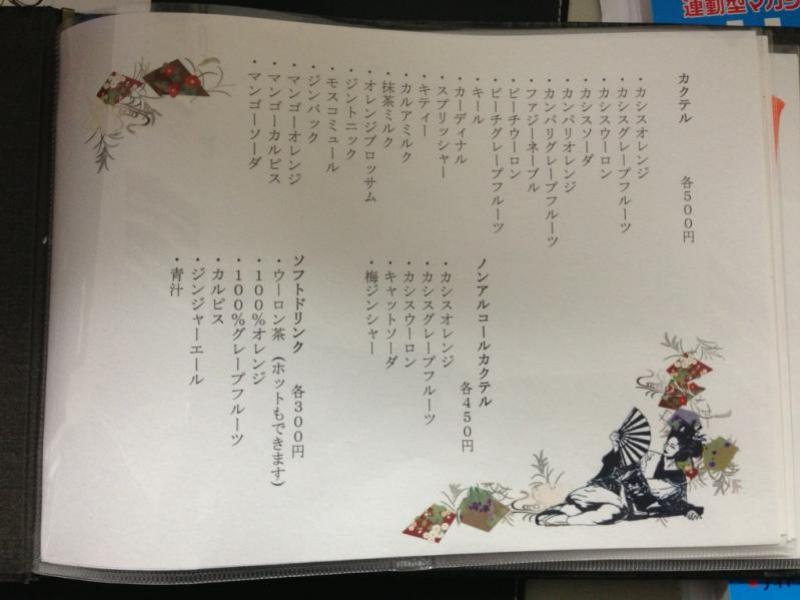 カクテル　各５００円
・カシスオレンジ
・カシスグレープフルーツ
・カシスウーロン
・カシスソーダ
・カンパリオレンジ
・カンパリグレープフルーツ
・ファジーネーブル
・ピーチウーロン
・ピーチグレープフルーツ
・キール
・カーディナル
・スプリッシャー
・キティー
・カルアミルク
・抹茶ミルク
・オレンジブロッサム
・ジントニック
・モスコミュール
・ジンバック
・マンゴーオレンジ
・マンゴーカルピス
・マンゴーソーダ
ノンアルコールカクテル
各４５０円
・カシスオレンジ
・カシスグレープフルーツ
・カシスウーロン
・キャットソーダ
・梅ジンシャー
ソフトドリンク　各３００円
・ウーロン茶（ホットもできます）
・１００％オレンジ
・１００％グレープフルーツ
・カルピス
・ジンジャーエール
・青汁
運動型マガジ